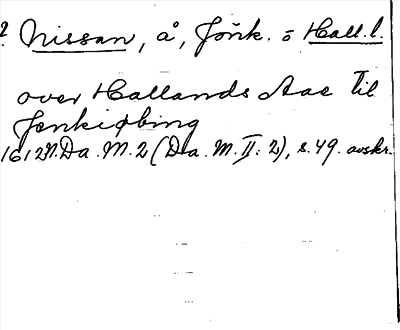 2 Nissan, å, Jönk. o Hall. l.
over Hallands Aae til
Jenkiøbing
1612 N.Da.M.2 (Da.M.II:2), s.49. avskr.